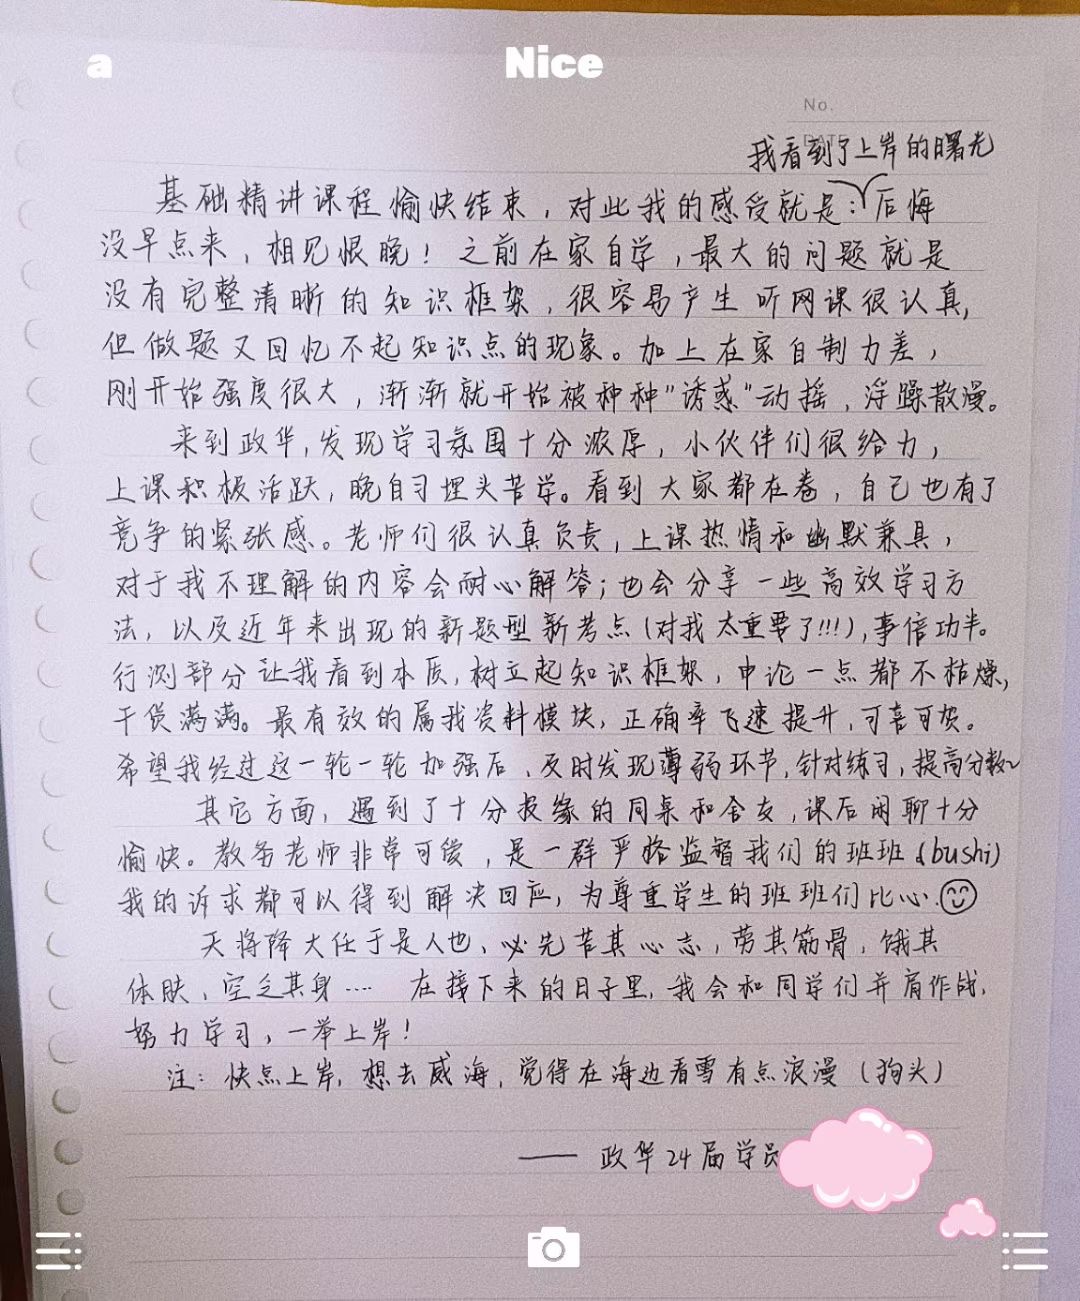 a
Nice
No.
DATE
我看到了上岸的曙光
基础精讲课程愉快结束，对此我的感受就是：后悔
没早点来，相见恨晚！之前在家自学，最大的问题就是
没有完整清晰的知识框架，很容易产生听网课很认真，
但做题又回忆不起知识点的现象。加上在家自制力差，
刚开始强度很大，渐渐就开始被种种"诱惑"动摇，浮躁散漫。
来到政华，发现学习氛围十分浓厚，小伙伴们很给力，
上课积极活跃，晚自习埋头苦学。看到大家都在卷，自己也有了
竞争的紧张感。老师们很认真负责，上课热情和幽默兼具，
对于我不理解的内容会耐心解答；也会分享一些高效学习方
法，以及近年来出现的新题型新考点(对我太重要了!!!)，事倍功半。
行测部分让我看到本质，树立起知识框架，申论一点都不枯燥，
干货满满。最有效的属我资料模块，正确率飞速提升，可喜可贺。
希望我经过这一轮一轮加强后，及时发现薄弱环节，针对练习，提高分数~
其它方面，遇到了十分投缘的同桌和舍友，课后闲聊十分
愉快。教务老师非常可爱，是一群严格监督我们的班班(bushi)
我的诉求都可以得到解决回应，为尊重学生的班班们比心.
天将降大任于是人也，必先苦其心志，劳其筋骨，饿其
体肤，空乏其身…… 在接下来的日子里，我会和同学们并肩作战，
努力学习，一举上岸！
注：快点上岸，想去威海，觉得在海边看雪有点浪漫（狗头）
—— 政华24届学员